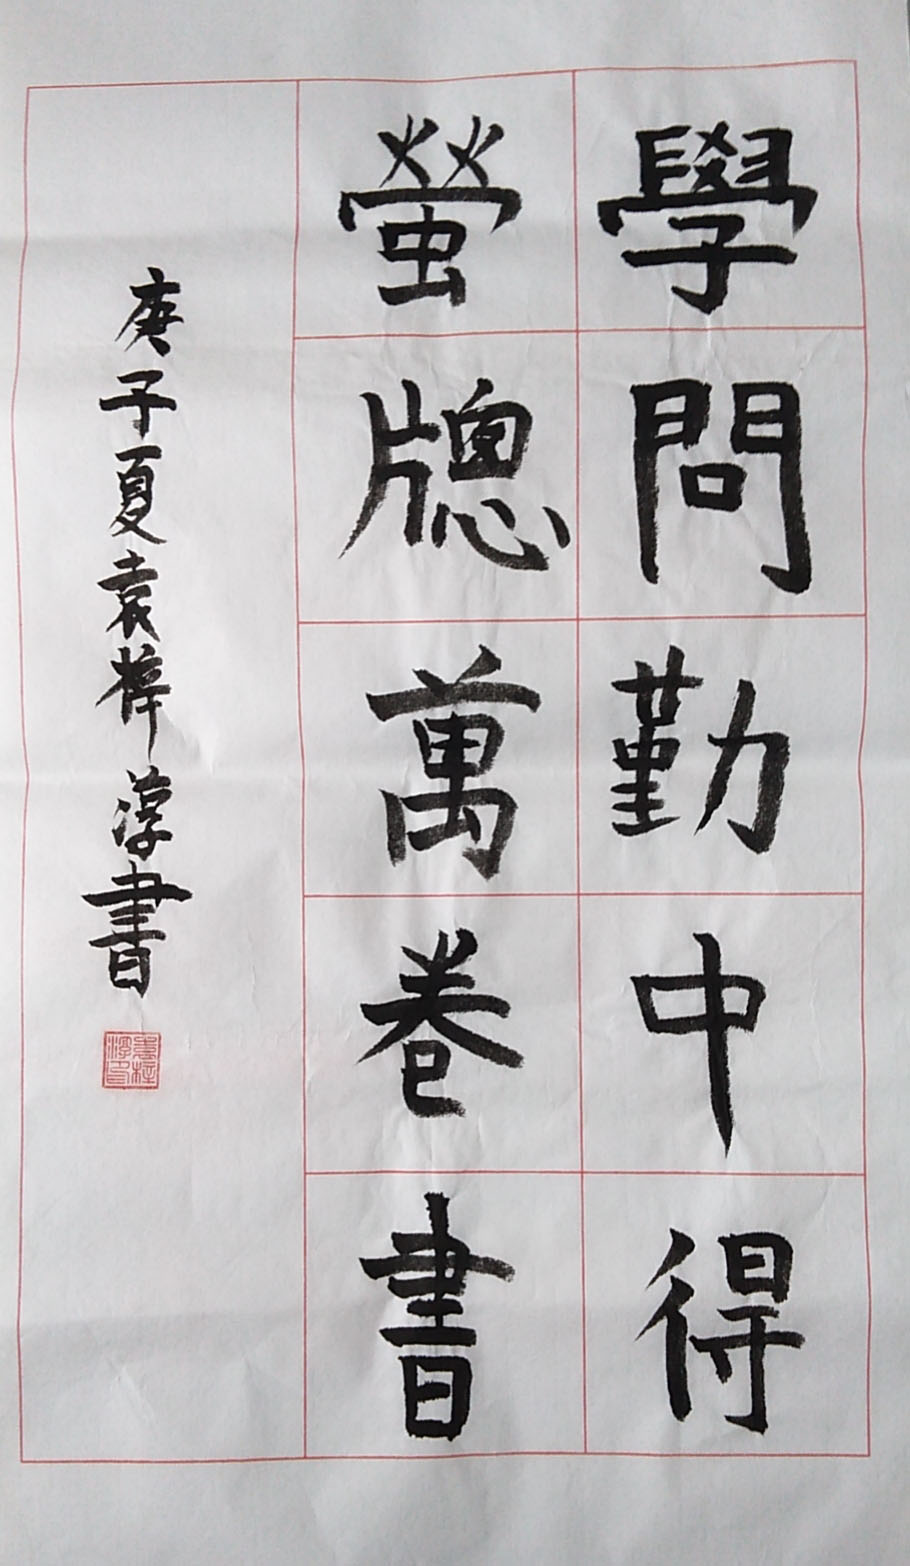 學問勤中得
螢牕萬卷書
庚子夏袁梓淳書